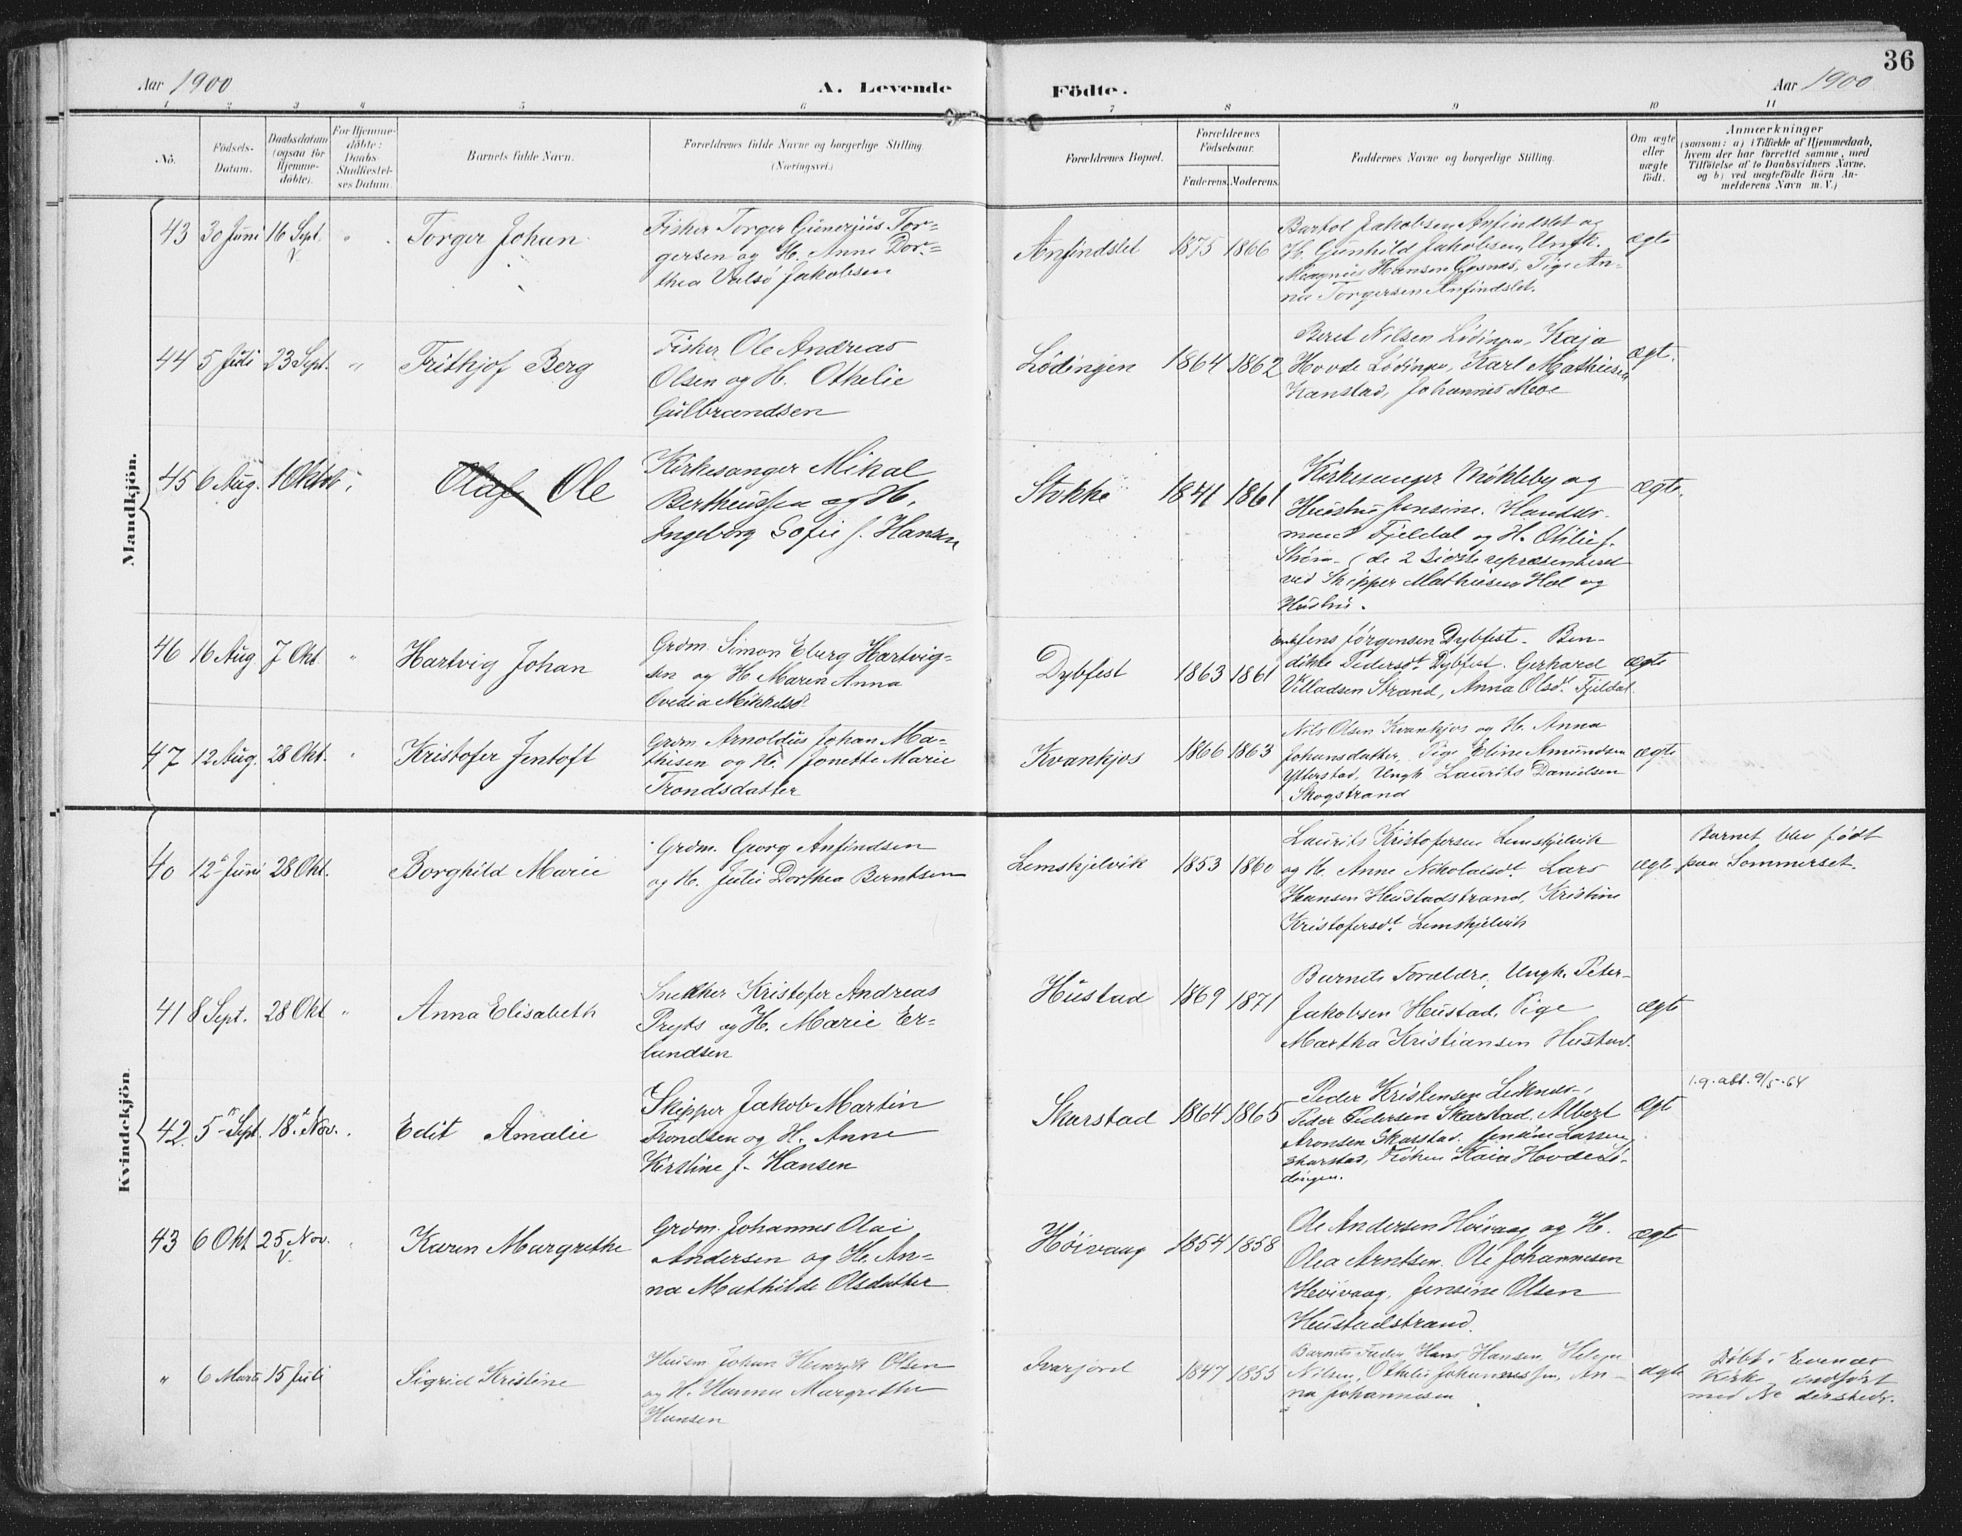 Aar 1900
A. Levende
Födte.
Aar 1900
36
1 2 3 4 5 6 7 8 9 10 11
No.
Födsels-
Datum.
Daabsdatum
(ogsaa for
Hjemme-
döbte).
For Hjemme-
döbte:
Daabs-
Stadfæstel-
ses Datum.
Barnets fulde Navn.
Forældrenes fulde Navne og borgerlige Stilling
(Næringsvei.)
Forældrenes Bopæl.
Forældrenes
Födselsaar.
Faderens. Moderens.
Faddernes Navne og borgerlige Stilling.
Om ægte
eller
uægte
födt.
Anmærkninger
(saasom: a) i Tilfælde af Hjemmedaab,
hvem der har forrettet samme, med
Tilföielse af to Daabsvidners Navne,
og b) ved uægtefödte Börn An-
melderens Navn m. V.)
Mandkjön.
43 30 Juni 16 Sept. " Torger Johan
Fisher Torger Gunerius Tor-
gersen og H. Anne Dor-
thea Valsö Jakobsen
Anfindslet 1875 1866
Bartol Jakobsen Anfindslet og
H. Gunhild Jakobsen, Ungk.
Magnus Hansen Gosnes, Pige An-
na Torgersen Anfindslet.
ægte
44 5 Juli 23 Sept. " Frithjof Berg
Fisker Ole Andreas
Olsen og H. Othelie
Gulbrandsen
Lödingen 1864 1862
Beret Nilsen Lödingen, Kaja
Hovde Lödingen, Karl Mathiesen
Kanstad, Johannes Moe
ægt.
45 6 Aug. 1 Oktob. " Olaf Ole
Kirkesanger Mikal
Bertheussen og H.
Ingeborg Sofie f. Hansen
Stokke 1841 1861
Kirkesanger Mökleby og
Hustru Jensine. Handels-
mand Fjeldal og H. Otilie f.
Ström (de 2 sidste repræsenteret
ved Skipper Mathiesen Hol og
Hustru.
ægte.
46 16 Aug 7 Okt " Hartvig Johan
Grdm. Simon Eberg Hartvig-
sen og H. Maren Anna
Ovedia Mikkelsd.
Dybfest 1863 1861
Jens Jörgensen Dybfest. Ben-
dikte Pedersdt. Dybfest. Gerhard
Villadsen Strand, Anna Olsdt. Fjeldal.
ægte
47 12 Aug. 28 Okt. " Kristofer Jentoft
Grdm. Arnoldus Johan Ma-
thisen og H. Jonette Marie
Trondsdatter
Kvankjos 1866 1863
Nils Olsen Kvankjos og H. Anna
Johansdatter, Pige Eline Amundsen
Ytterstad, Ungk. Laurits Danielsen
Skogstrand
ægte
Kvindekjön.
40 12 Juni 28 Okt. Borghild Marie
Grdm. Georg Anfindsen
og H. Julie Dorthea Berntsen
Lemskjelvik 1853 1860
Laurits Kristofersen Lemskjelvik
og H. Anne Nikolaisdt. Lars
Hansen Heustadstrand, Kristine
Kristofersdt. Lemskjelvik
ægte
Barnet blev födt
paa Sommerset.
41 8 Sept. 28 Okt " Anna Elisabeth
Snekker Kristofer Andreas
Pryts og H. Marie Er-
landsen
Hustad 1869 1871
Barnets Forældre, Ungk. Peter
Jakobsen Heustad, Pige
Martha Kristiansen Hustad.
ægte
42. 5 Sept. 18 Nov. . Edit Amalie
Skipper Jakob Martin
Trondsen og H. Anne
Kirstine f. Hansen
Skarstad 1864 1865
Peder Kristensen
Peder Pedersen Skarstad. Albert
Aronsen Skarstad. Jensine Larsen
Skarstad, Fröken Kaia Hovde Lö-
dingen.
ægt
1.g. abt. 9/5-64
43 6 Okt 25 Nov. " Karen Margrethe
Grdm. Johannes Olai
Andersen og H. An-
na Mathilde Olsdatter
Höivaag 1854 1858
Ole Andersen Höivaag og H.
Olea Arntsen. Ole Johannesen
Heöivaag. Jensine Olsen
Heustadstrand.
ægte
" 6 Marts 15 Juli Sigrid Kristine
Husm. Johan Heinrik Olsen
og H. Hanna Margrethe
Hansen
Ivarjord 1847 1855
Barnets Fader, Hans Hansen, Helene
Nilsen, Othelie Johannessen, An-
na Johannesen
ægte
Döbt i Evenæs
Kirke indfört
med No dersteds.